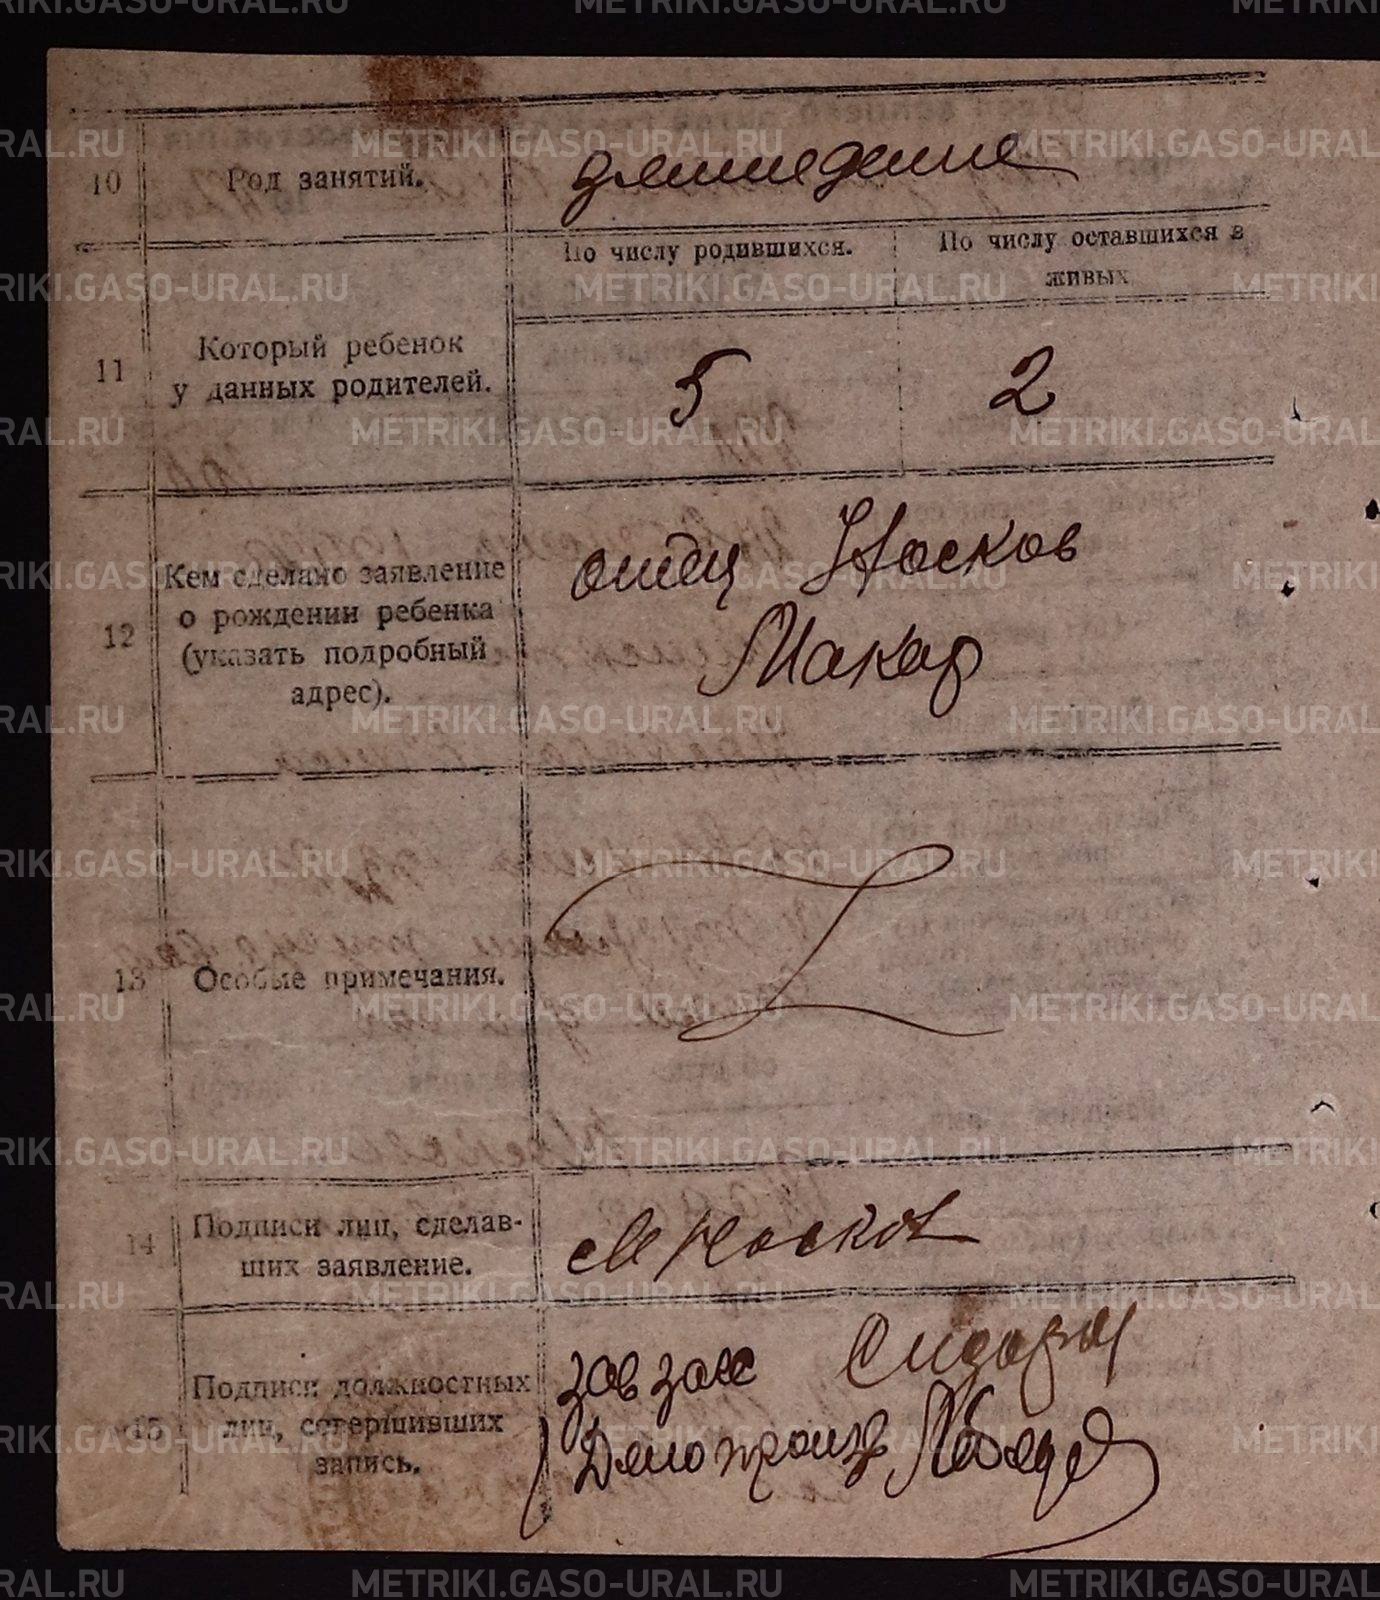 10 Род занятий. землед елие
По числу родившихся. По числу оставшихся в
живых
11 Который ребенок
у данных родителей. 5 2
12 Кем сделано заявление
о рождении ребенка
(указать подробный
адрес).
отец Носков
Макар
13 Особые примечания.
14 Подписи лиц, сделав-
ших заявление. М Носков
15 Подписи должностных
лиц, совершивших
запись.
зав загс
Делопроизв
METRIKI.GASO-URAL.RU